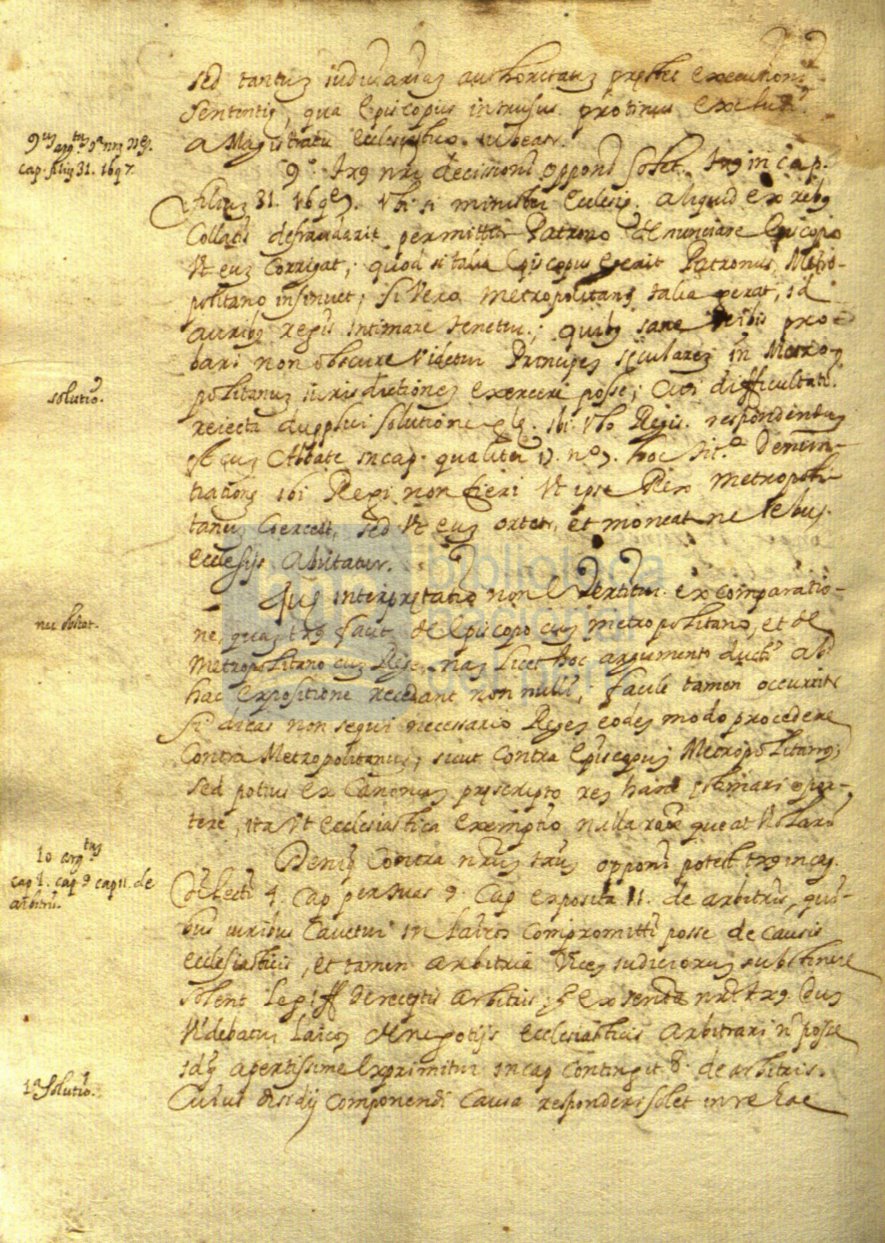 sed tantum iudiciariam authoritatem prestet executioni
sententię, qua Episcopus intrusus protinus
a Magistratu Ecclesiastico iubeatur.
cap. filijs 31. 16 q 7.
9º. decisioni opponi solet in cap.
filijs 31. 16 q 7. Vbi si minister Ecclesię aliquid ex rebus
Collatis defraudarit permittitur Patrono denunciare Episcopo
Vt eum Corrigat; quod si talia Episcopus gerat Patronus Metro-
politano insinuet; si Vero metropolitanus talia gerat, id
auribus regis intimare tenetur; quibus sane Verbis pro-
bari non obscure Videtur Principes sęculares in Metro-
politanum iurisdictionem exercere posse; difficultati
solutio.
reiecta dupplici solutione Vbo Regis respondendum
est cum Abbate in cap. qualiter 17. nº 7. hoc denun-
tiationem ibi Regi non fieri Vt ipse Rex metropoli-
tanum Coerceat, sed Vt eum ortetur, et moneat ne rebus
Ecclesiję abutatur.
interprętatio non ex comparatio-
ne, quam de Episcopo cum metropolitano, et de
Metropolitano cum Rege, nam licet hoc argumento ab
hac expositione recedant non nulli; facile tamen occurrit
si dicas non sequi necessario Reges eodem modo procedere
Contra Metropolitanum, sicut Contra Episcopum Metropolitanus;
sed potius ex Canonum pręscripto rem hanc ęstimari opor-
tere, ita Vt ecclesiastica exemptio nulla queat Violari
10 argtum
cap 1. cap 9 cap 11. de
arbitris.
Deniq Contra nrum opponi potest in cap.
4. Cap per tuas 9. Cap exposita 11. de arbitris, qui-
bus iuribus Cavetur in laicos Compromitti posse de causis
Ecclesiasticis, et tamen arbitria Vices iudiciorum substinere
solent leg 1 ff de receptis arbitris;
Videbatur laicos de negotijs Ecclesiasticis arbitrari n posse
idq apertissime exprimitur in cap Contingit 8. de arbitris.
1ª Solutio.
Cuius disidij componendi causa responderi solet in re hac